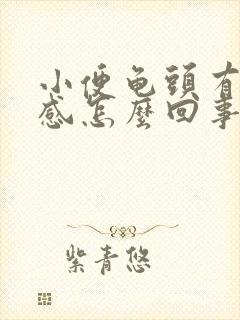 小便龟頭有
感怎麼回事
紫青悠